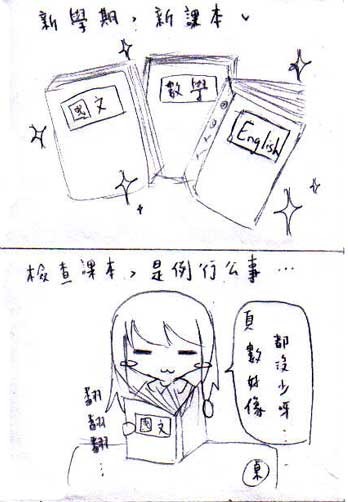 新學期，新課本
國文
數學
English
檢查課本，是例行公事…
頁數好像
都沒少呀…
翻翻翻…
國文
桌